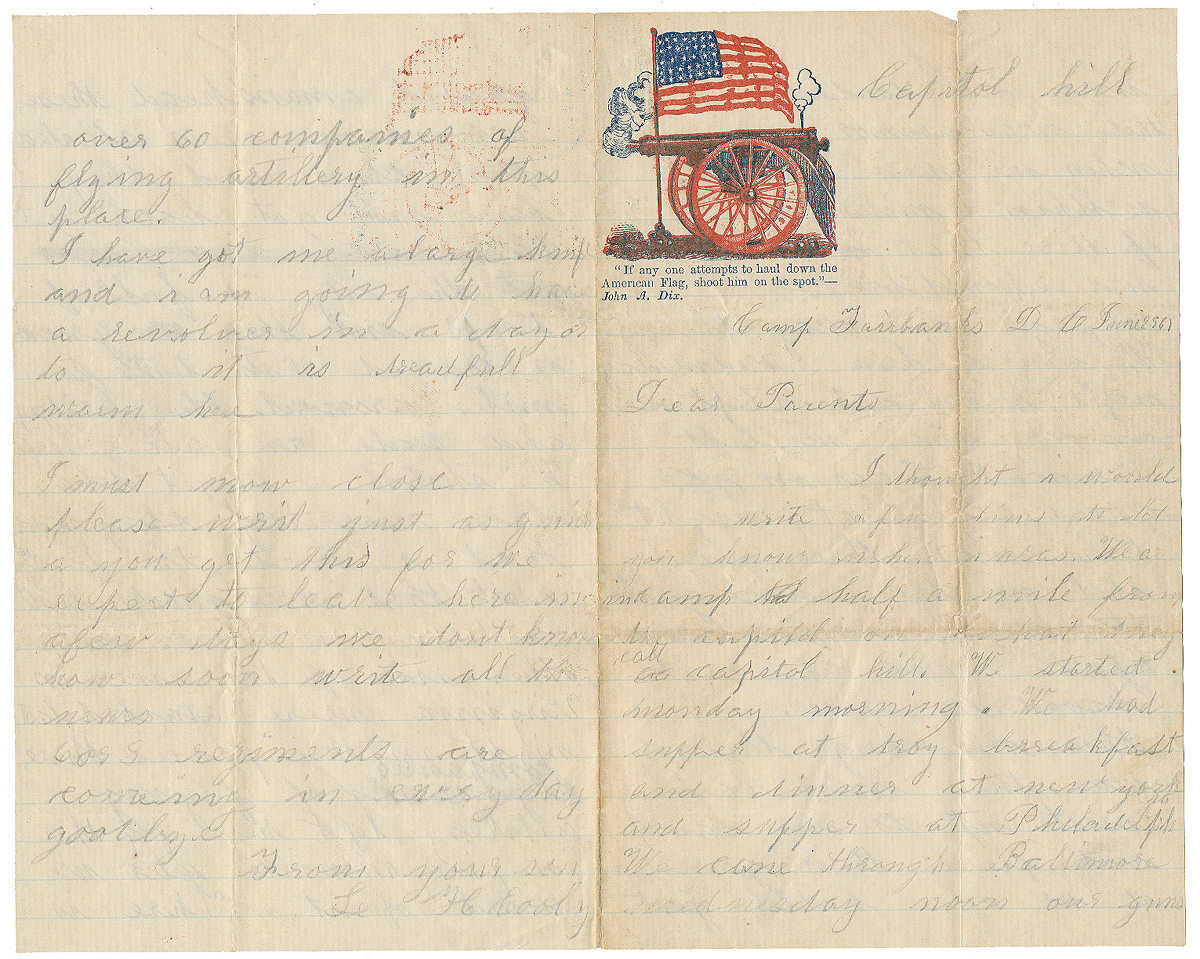 Capitol hill
"If any one attempts to haul down the
American Flag, shoot him on the spot."—
John A. Dix.
Camp Fairbanks D C June 2861
Dear Parents
I thought i would
write a few lines to let
you know where i was. We ar
in camp half a mile from
the capitol on what they
call capitol hill. We started
monday morning. We had
supper at troy breakfast
and dinner at new york
and supper at Philadelphia
We came through Baltimore
wednesday noon our guns
over 60 companies of
flying artillery in this
place.
I have got me a large knif
and i am going to have
a revolver in a day or
to it is treadfull
warm hae
I must now close
please writ just as quick
a you get this for we
expect to leave here in
a few days we dont know
how soon write all the
news
regiments are
comeing in every day
good bye
From your son
Le H Cooly